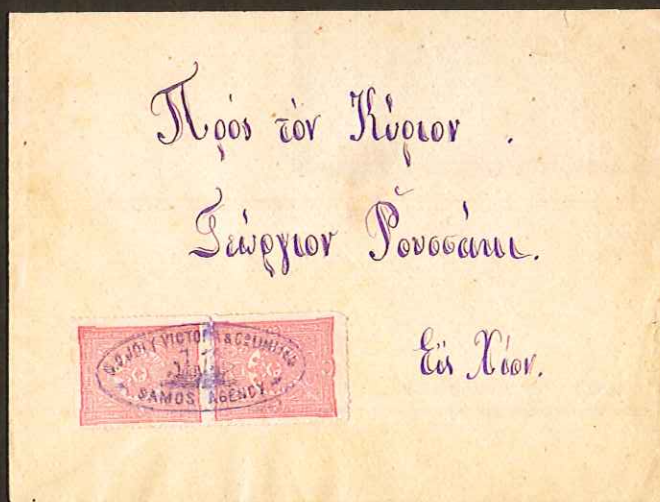 Πρὸς τὸν Κύριον .
Γεώργιον Ῥουσσάκι.
Εἰς Χίον.
G.D.JOLY VICTORIA & Co LIMITED
SAMOS AGENCY